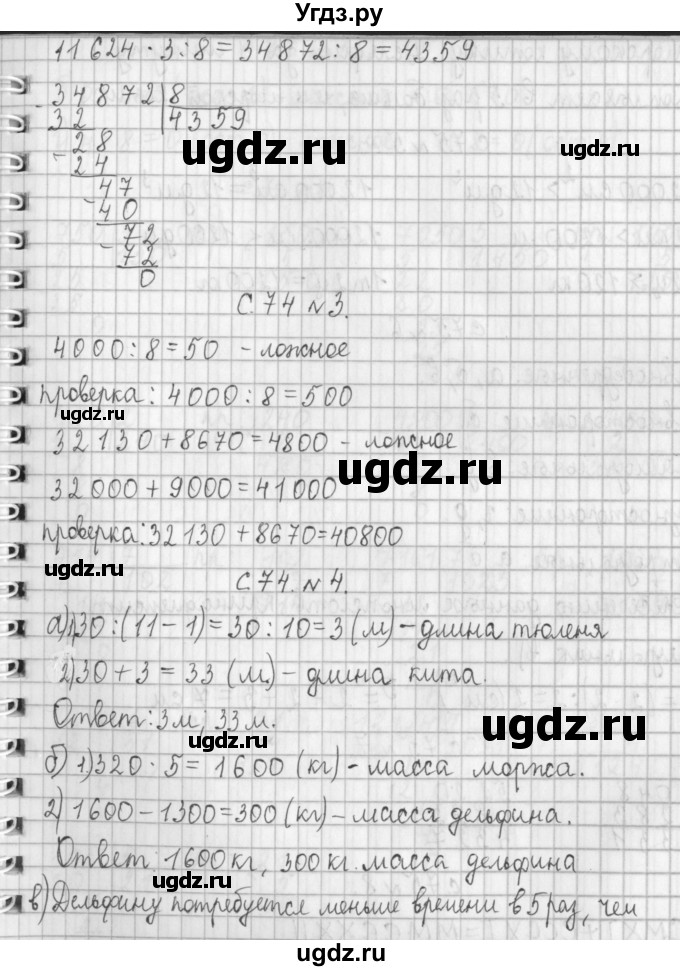 Угдз.ру
11 624 · 3 : 8 = 34 872 : 8 = 4359
34872 8
32 4359
28
ugdz.ru
ugdz.ru
- 24
47
- 40
72
- 72
0
С. 74 №3.
4000 : 8 = 50 - ложное
проверка: 4000 : 8 = 500
ugdz.ru
32 130 + 8670 = 4800 - ложное
ugdz.ru
32 000 + 9000 = 41 000
проверка: 32 130 + 8670 = 40800
ugdz.ru
С. 74. №4.
а)1)30 : (11 - 1) = 30 : 10 = 3 (м) - длина тюленя
2) 30 + 3 = 33 (м) - длина кита.
Ответ: 3 м; 33 м.
ugdz.ru
ugdz.ru
б) 1) 320 · 5 = 1600 (кг) - масса моржа.
2) 1600 - 1300 = 300 (кг) - масса дельфина.
Ответ: 1600 кг, 300 кг. масса дельфина
ugdz.ru
в) Дельфину потребуется меньше времени в 5 раз, чем
ugdz.ru
ugdz.ru